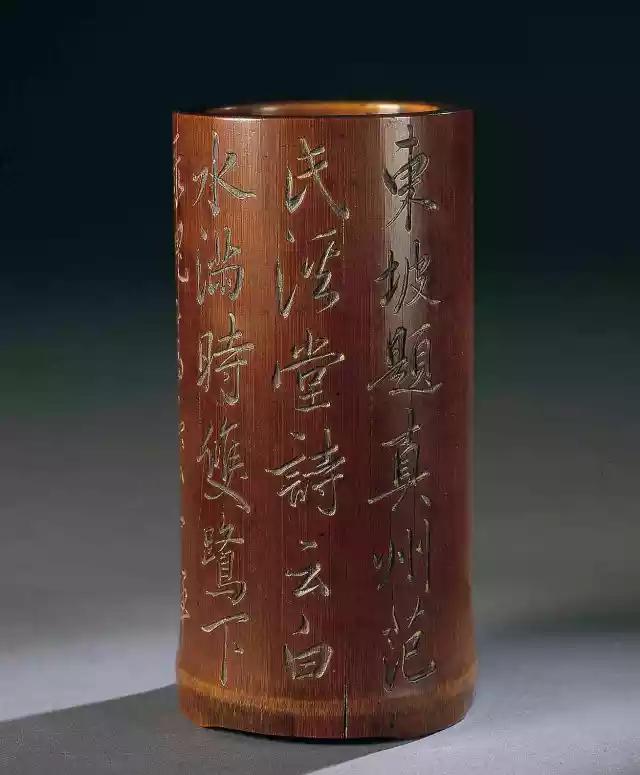 東坡題真州范
氏溪堂詩云白
水滿時雙鷺下